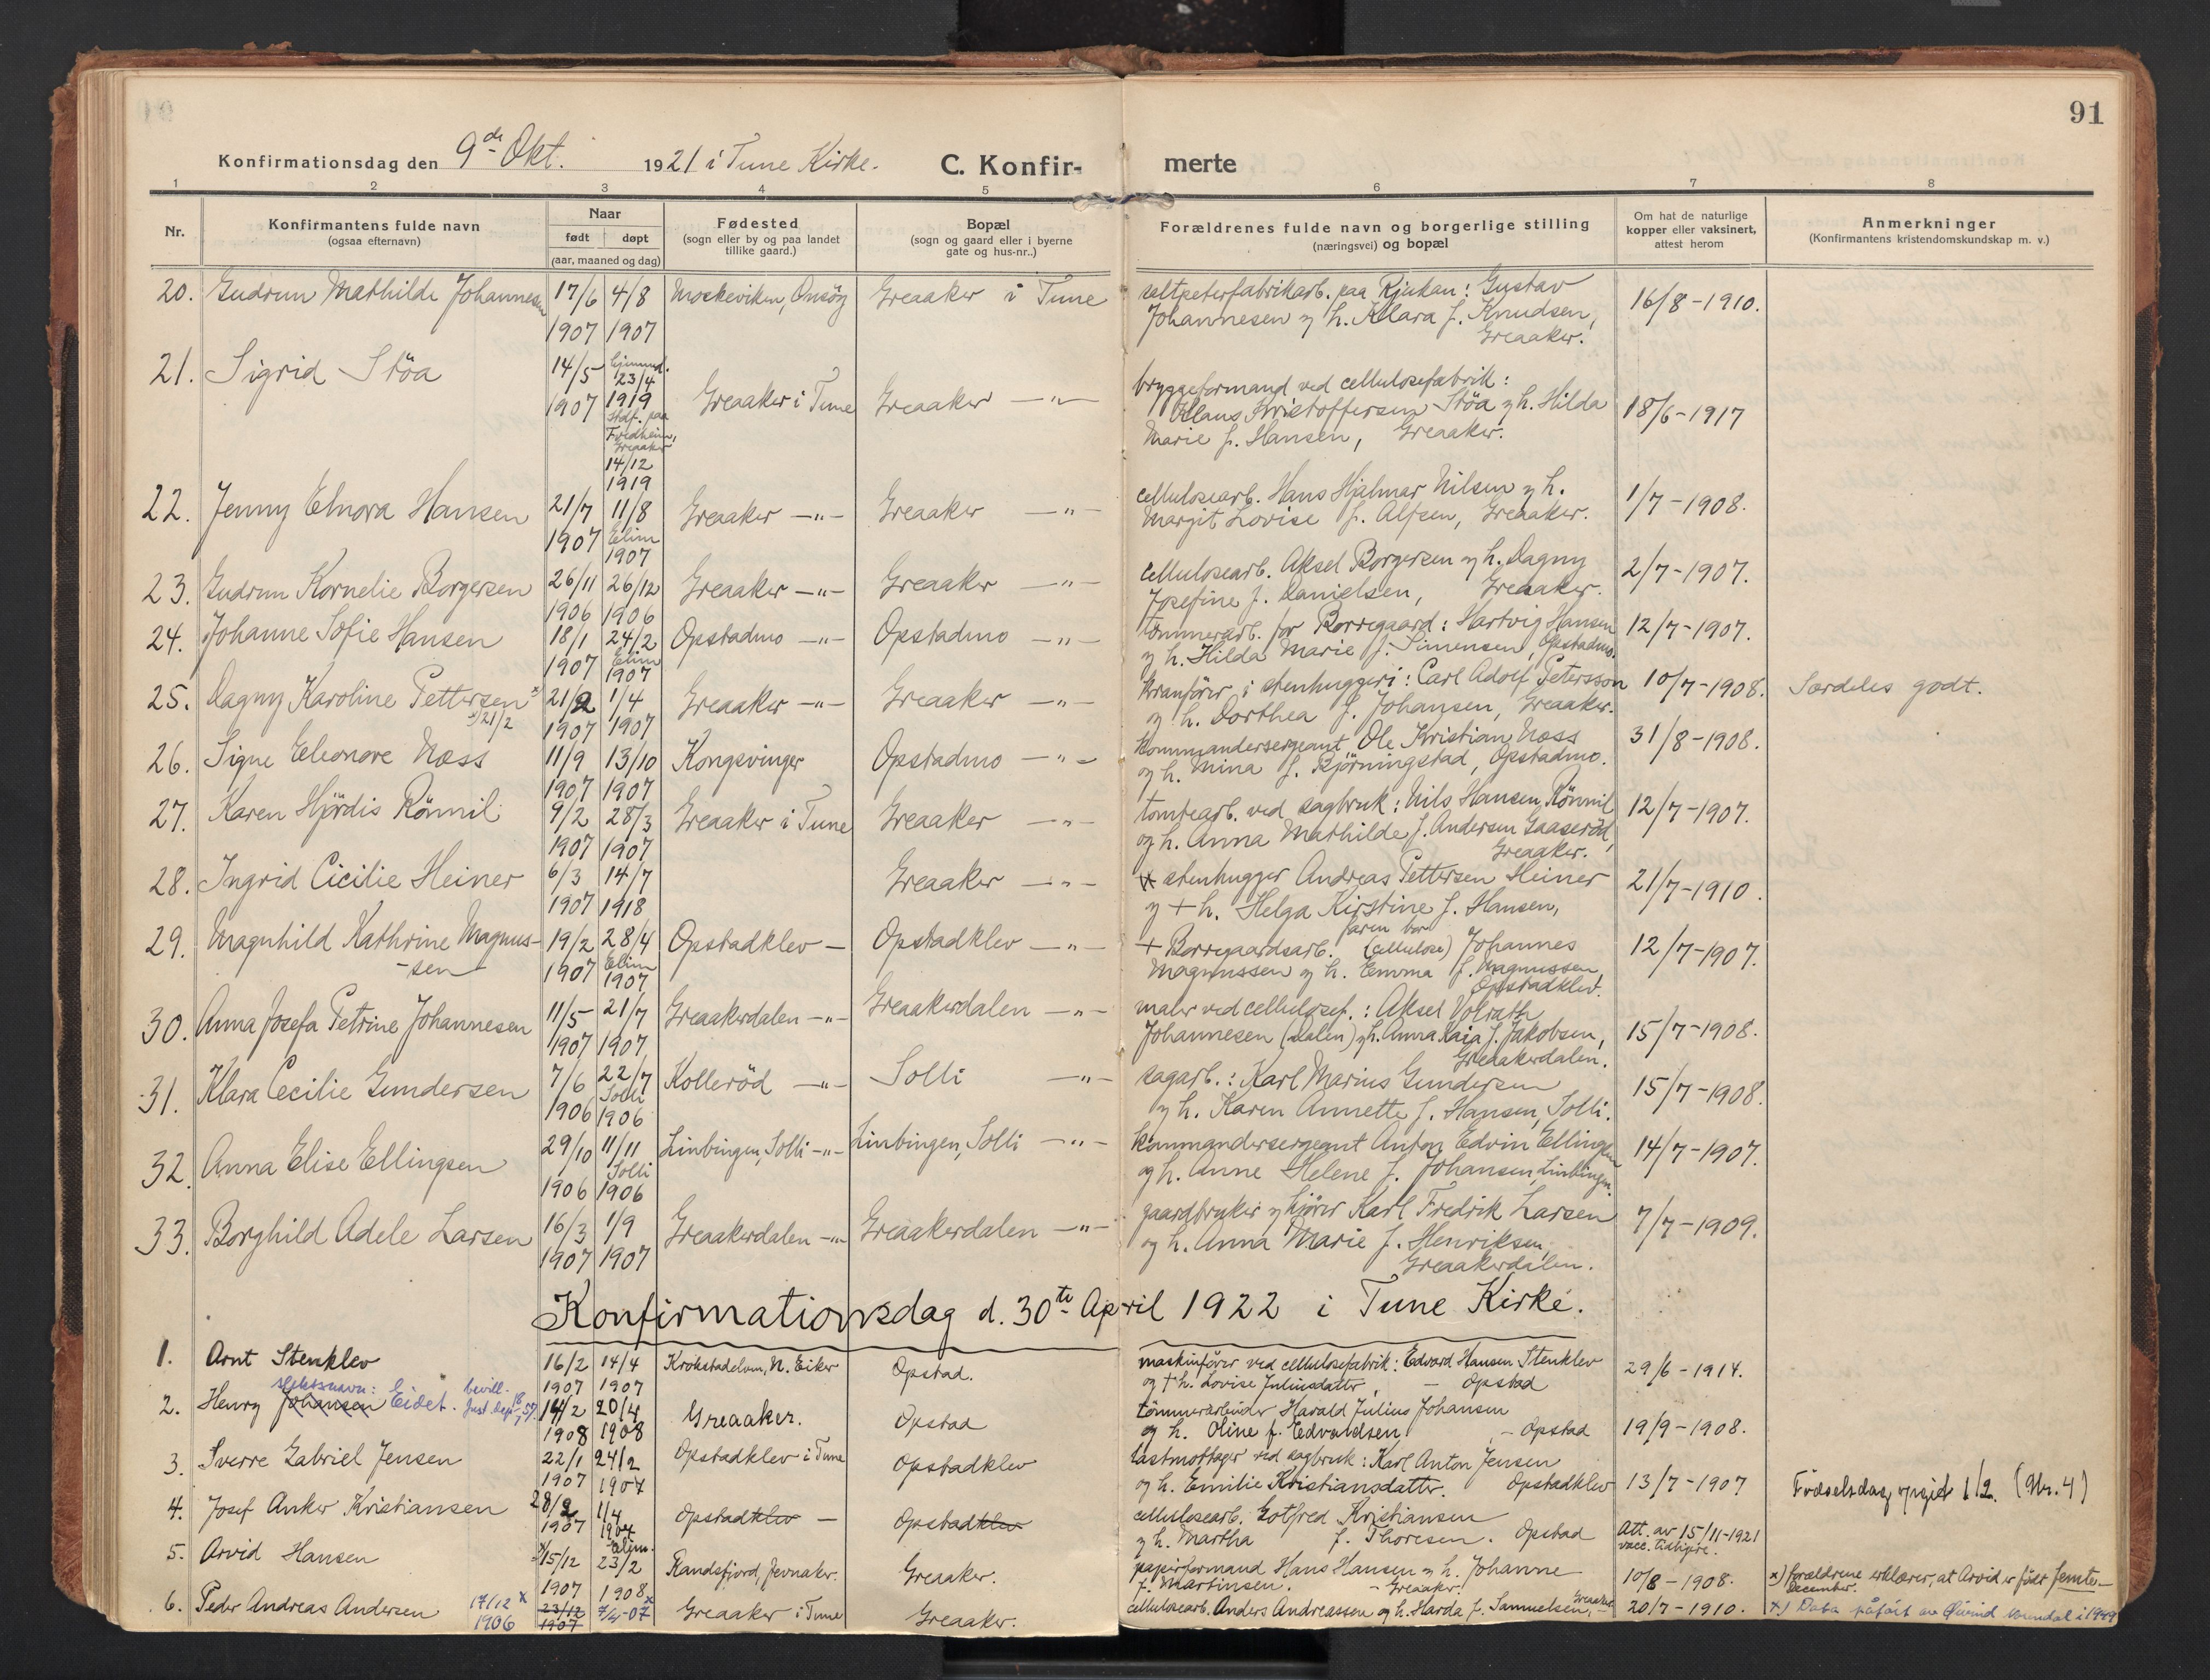 91
Konfirmationsdag den 9de Okt. 1921 i Tune Kirke. C. Konfirmerte
1 2 3 4 5 6 7 8
Nr. Konfirmantens fulde navn (ogsaa efternavn) Naar født døpt (aar, maaned og dag) Fødested (sogn eller by og paa landet tillike gaard.) Bopæl (sogn og gaard eller i byerne gate og hus-nr..) Forældrenes fulde navn og borgerlige stilling (næringsvei) og bopæl Om hat de naturlige kopper eller vaksinert, attest herom Anmerkninger (Konfirmantens kristendomskundskap m. v.)
20. Gudrun Mathilde Johannesen 17/6 4/8 Moskeviken, Onsöy Greaaker i Tune saltpeterfabrikarb. paa Rjukan: Gustav 16/8-1910.
1907 1907 Johannesen og h. Klara f. Knudsen,
Greaaker.
21. Sigrid Stöa 14/5 hjemmed. 23/4
1907 1919 Greaaker i Tune Greaaker —"— bryggeformand ved cellulosefabrik:
stdf. paa Fredheim, Greaaker Klaus Kristoffersen Stöa og h. Hilda 18/6-1917
14/12 1919 Marie f. Hansen, Greaaker.
22. Jenny Elnora Hansen 21/7 11/8 Greaaker —"— Greaaker —"— cellulosearb. Hans Hjalmar Nilsen og h. 1/7-1908.
1907 Elim 1907 Margit Lovise f. Alfsen, Greaaker.
23. Gudrun Kornelie Borgersen 26/11 26/12 Greaaker —"— Greaaker —"— cellulosearb. Aksel Borgersen og h. Dagny 2/7-1907.
1906 1906 Josefine f. Danielsen, Greaaker.
24. Johanne Sofie Hansen 18/1 24/2 Opstadmo —"— Opstadmo —"— tömmerarb. for Borregaard: Hartvig Hansen 12/7-1907.
1907 Elim 1907 og h. Hilda Marie f. Simensen, Opstadmo.
25. Dagny Karoline Pettersen x 21/2 1/4 Greaaker —"— Greaaker —"— kranförer i stenhuggeri: Carl Adolf Petersson 10/7-1908. Særdeles godt.
x) 21/2 1907 1907 og h. Dorthea f. Johansen, Greaaker.
26. Signe Eleonore Næss 11/9 13/10 Kongsvinger Opstadmo —"— kommandersergeant Ole Kristian Næss 31/8-1908.
1907 1907 og h. Mina f. Bjørningstad, Opstadmo.
27. Karen Hjördis Rönnil 9/2 28/3 Greaaker i Tune Greaaker —"— tomtearb. ved sagbruk: Nils Hansen Rönnil 12/7-1907.
1907 1907 og h. Anna Mathilde f. Andersen Gaaseröd,
Greaaker.
28. Ingrid Cicilie Heiner 6/3 14/7 Greaaker —"— stenhugger Andreas Pettersen Heiner 21/7-1910.
1907 1918 og + h. Helga Kirstine f. Hansen,
faren bor
29. Magnhild Kathrine Magnus- 19/2 28/4 Opstadklev — Opstadklev —"— + Borregaardsarb. (cellulose) Johannes 12/7-1907.
-sen 1907 Elim 1907 Magnussen og h. Emma f. Magnussen,
Opstadklev.
30. Anna Josefa Petrine Johannesen 11/5 21/7 Greaakerdalen —"— Greaakerdalen —"— maler ved cellulosef.: Aksel Volrath
1907 1907 Johannesen (Dalen) og h. Anna Kaja f. Jakobsen, 15/7-1908.
Greaakerdalen.
31. Klara Cecilie Gundersen 7/6 22/7 Kolleröd —"— Solli —"— sagarb.: Karl Marius Gundersen 15/7-1908.
1906 Solli 1906 og h. Karen Annette f. Hansen, Solli.
32. Anna Elise Ellingsen 29/10 11/11 Linbingen, Solli —"— Linbingen, Solli —"— kommandersergeant Anton Edvin Ellingsen 14/7-1907.
1906 Solli 1906 og h. Anne Helene f. Johansen, Linbingen.
33. Borghild Adele Larsen 16/3 1/9 Greaakerdalen —"— Greaakerdalen —"— gaardbruker og kjörer Karl Fredrik Larsen 7/7-1909.
1907 1907 og h. Anna Marie f. Henriksen,
Greaakerdalen.
Konfirmationsdag d. 30te April 1922 i Tune Kirke.
1. Arnt Stenklev 16/2 14/4 Krokstadelven, N. Eiker Opstad. maskinförer ved cellulosefabrik: Edvard Hansen Stenklev 29/6-1914.
1907 1907 og + h. Lovise Juliusdatter, — Opstad
slektsnavn: bevill.
2. Henry Johansen Eidet. Just.dep. 14/2 20/4 Greaaker. Opstad tömmerarbeider Harald Julius Johansen
1908 1908 og h. Oline f. Edvardsen, — Opstad 19/9-1908.
3. Sverre Gabriel Jensen 22/1 24/2 Opstadklev i Tune Opstadklev lastmottager ved sagbruk: Karl Anton Jensen
1907 1907 og h. Emilie Kristiansdatter. Opstadklev 13/7-1907 Födselsdag opgit 1/2. (Nr. 4)
4. Josef Anker Kristiansen 28/2 1/4 Opstadklev — Opstadklev cellulosearb. Gotfred Kristiansen
1907 1907 Elim. og h. Martha f. Thoresen. Opstad Att. av 15/11-1921 vacc. tidligere.
5. Arvid Hansen x) 15/12 23/2 Randsfjord, Jevnaker. Greaaker. papirformand Hans Hansen og h. Johanne
1907 1908 f. Martinsen. — Greaaker. 10/8-1908. x) forældrene erklærer, at Arvid er födt femte December.
6. Peder Andreas Andersen 17/12 x 1906 23/12 1907 7/4-07 x Greaaker i Tune Greaaker. cellulosearb. Anders Andreassen og h. Harda f. Samuelsen, Greaaker 20/7-1910. x) Data påført av Øivind i 1949